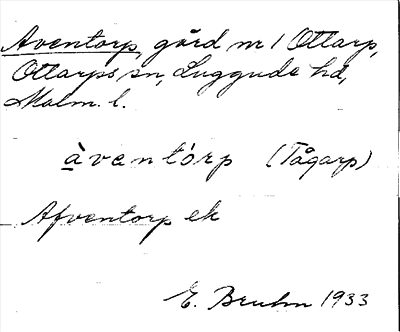 Aventorp, gård nr 1 Ottarp,
Ottarps sn, Luggude hd,
Malm. l.
àventórp (Tågarp)
Afventorp ek
E. Bruhn 1933